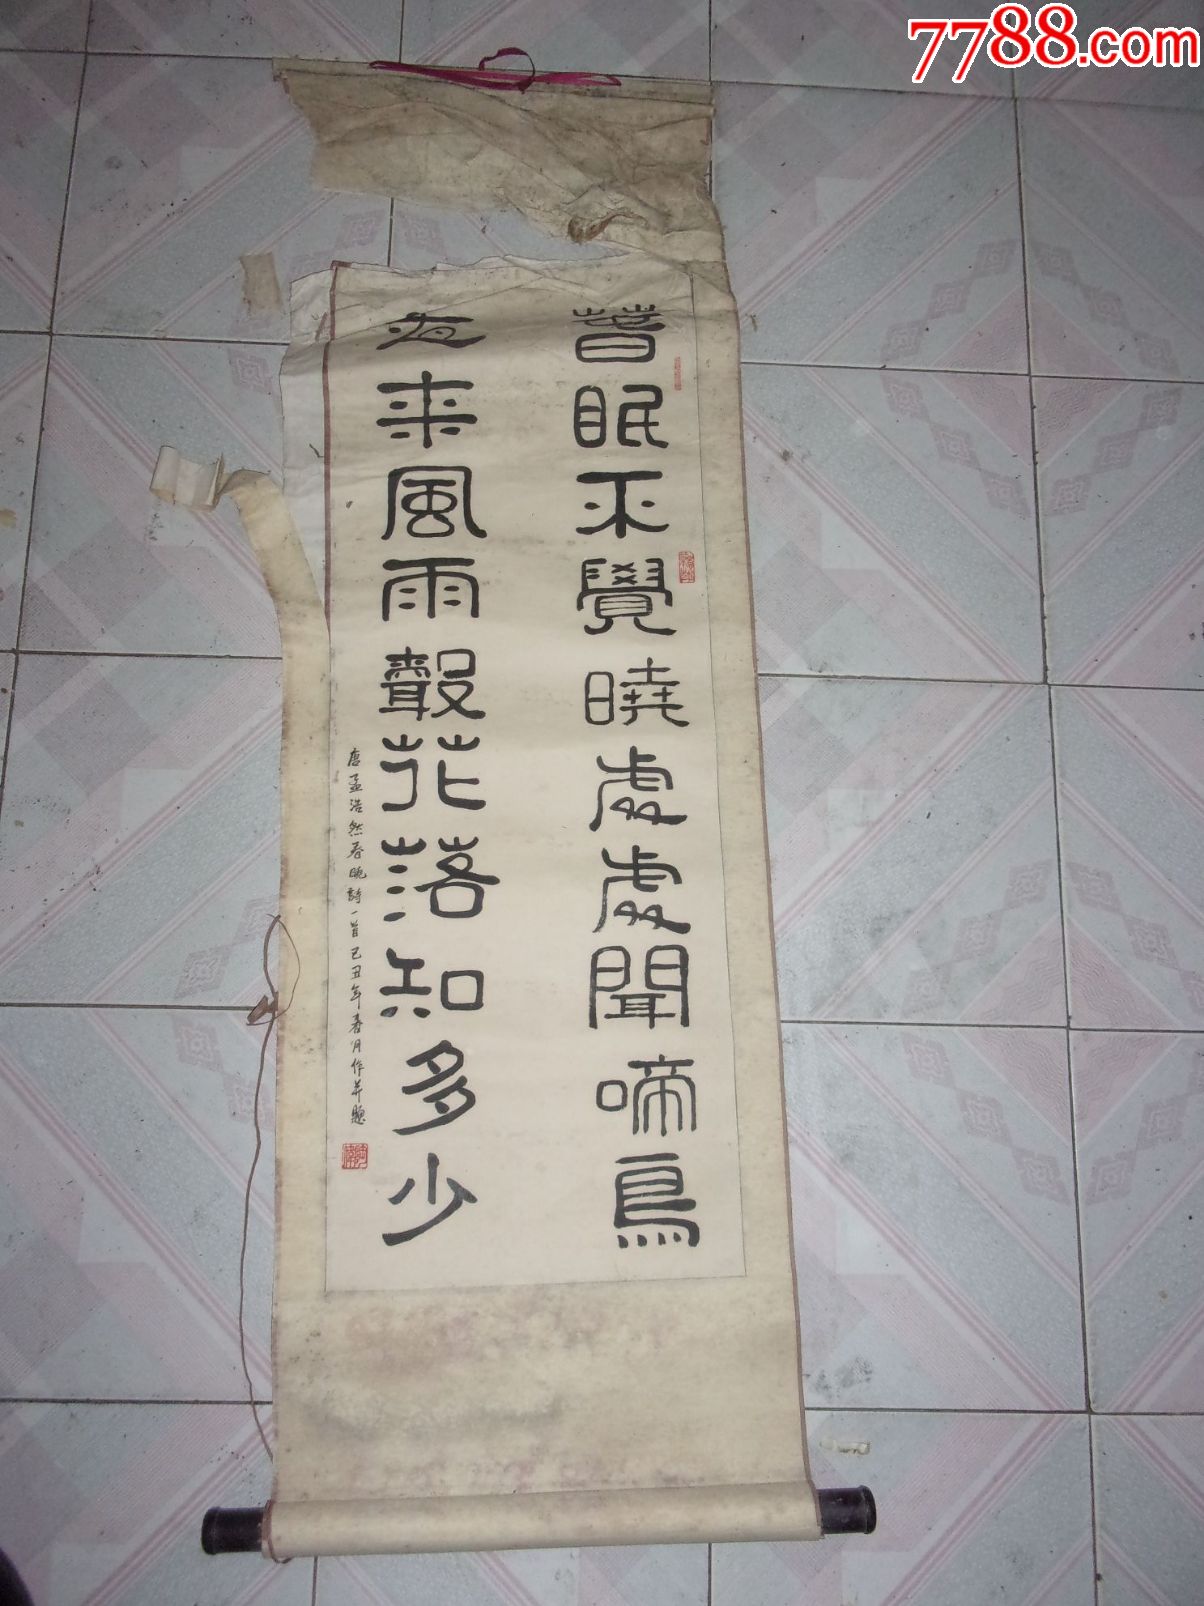 7788.com
春眠不覺曉處處聞啼鳥
夜来風雨聲花落知多少
唐孟浩然春曉詩一首己丑年春月作并題